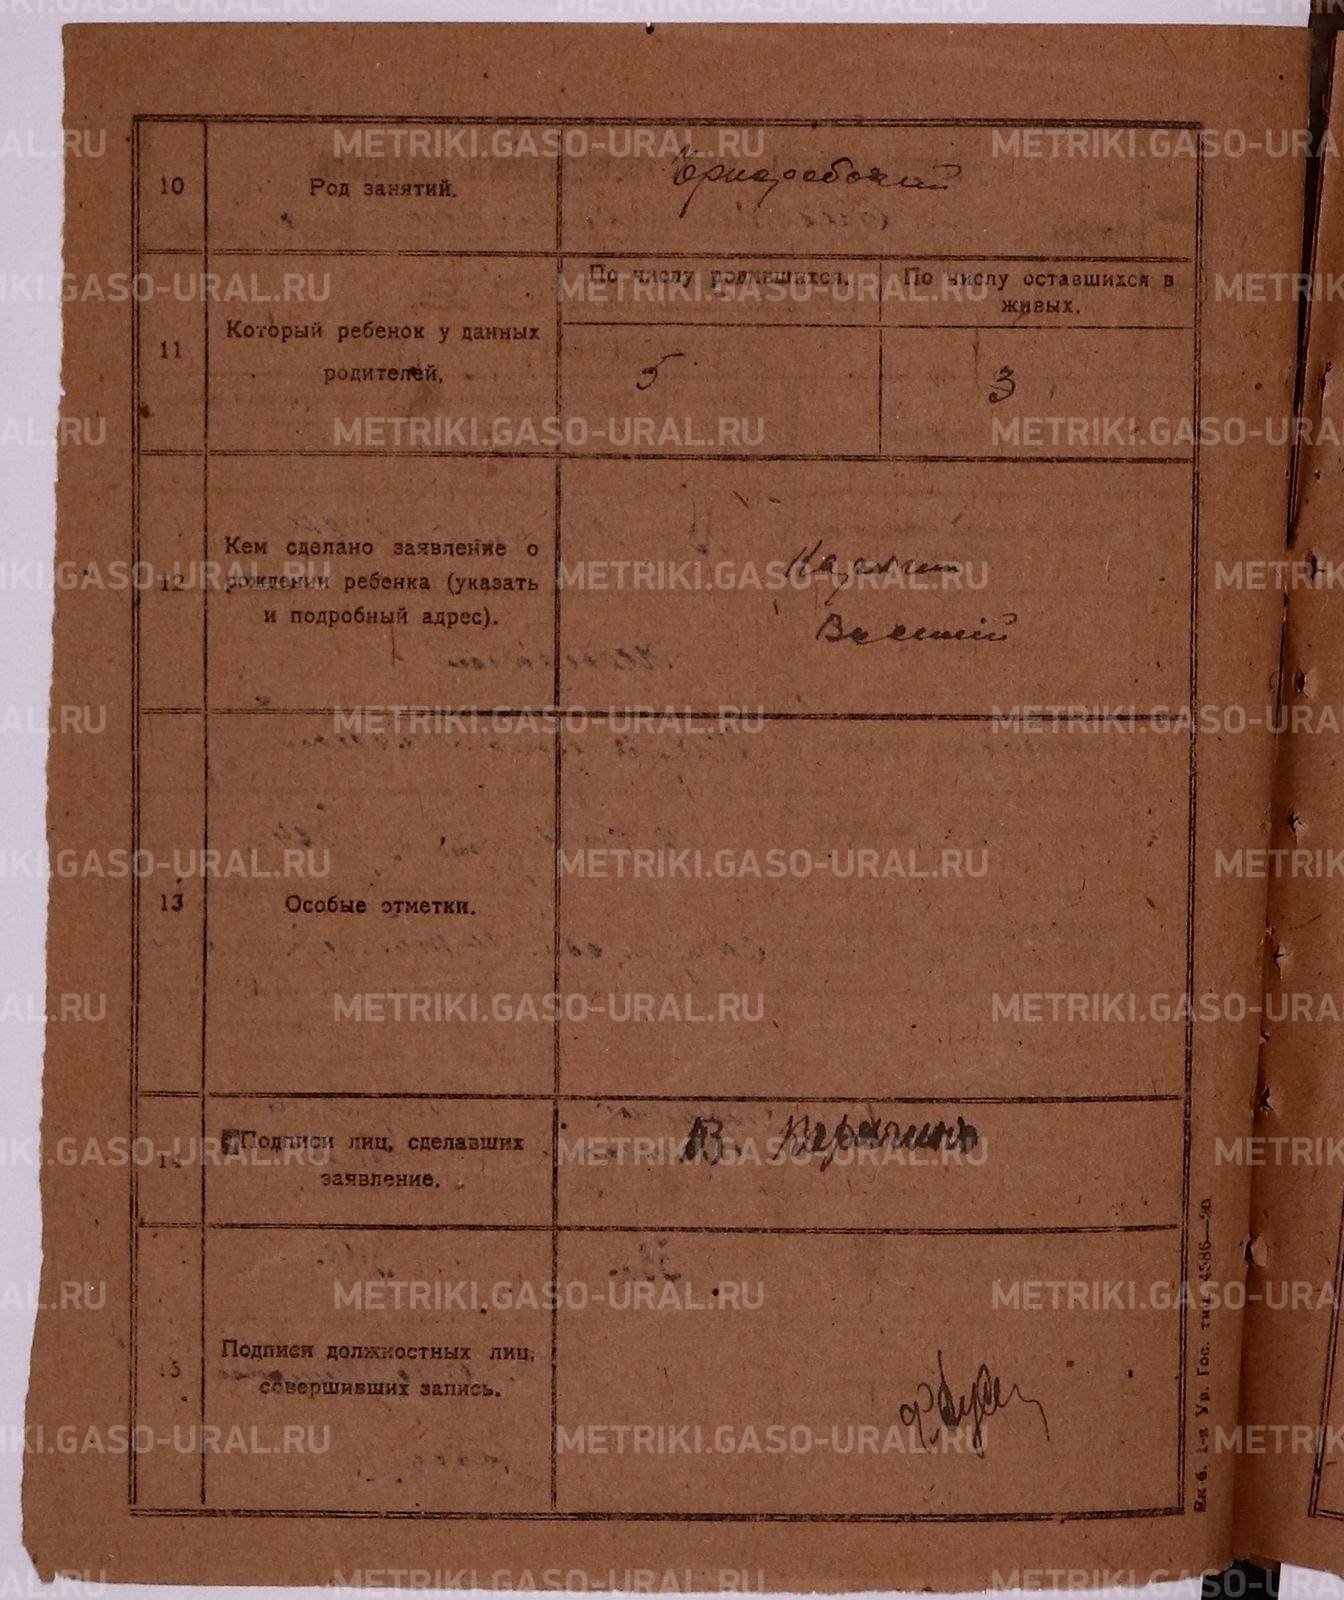 10
Род занятий.
Чернорабочий
11
Который ребенок у данных
родителей.
По числу родившихся.
По числу оставшихся в
живых.
5
3
12
Кем сделано заявление о
рождении ребенка (указать
и подробный адрес).
13
Особые отметки.
14
Подписи лиц, сделавших
заявление.
В.
15
Подписи должностных лиц,
совершивших запись.
1-я Ур. Гос. тип. 4586—20
METRIKI.GASO-URAL.RU